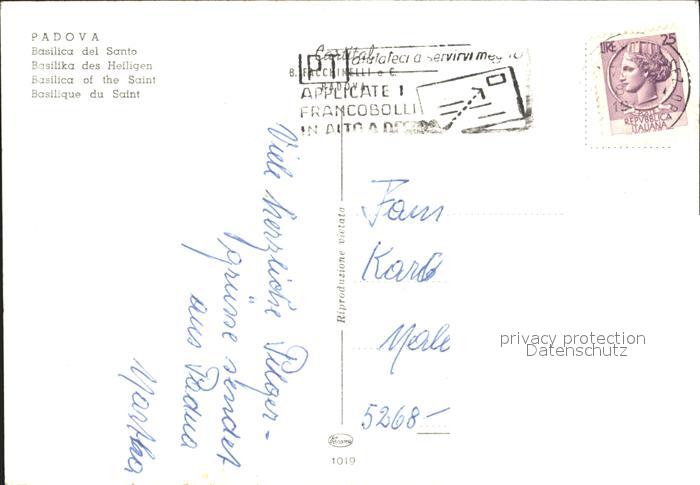 PADOVA
Basilica del Santo
Basilika des Heiligen
Basilica of the Saint
Basilique du Saint
B. FACCHINELLI e C.
PADOVA
PT aiutateci a servirvi meglio
APPLICATE I
FRANCOBOLLI
IN ALTO A DESTRA
LIRE 25
REPVBBLICA
ITALIANA
Viele herzliche Pilger-
grüsse sendet
aus Padua
Martha
Riproduzione vietata
Fam
Karl
5268-
privacy protection
Datenschutz
1019